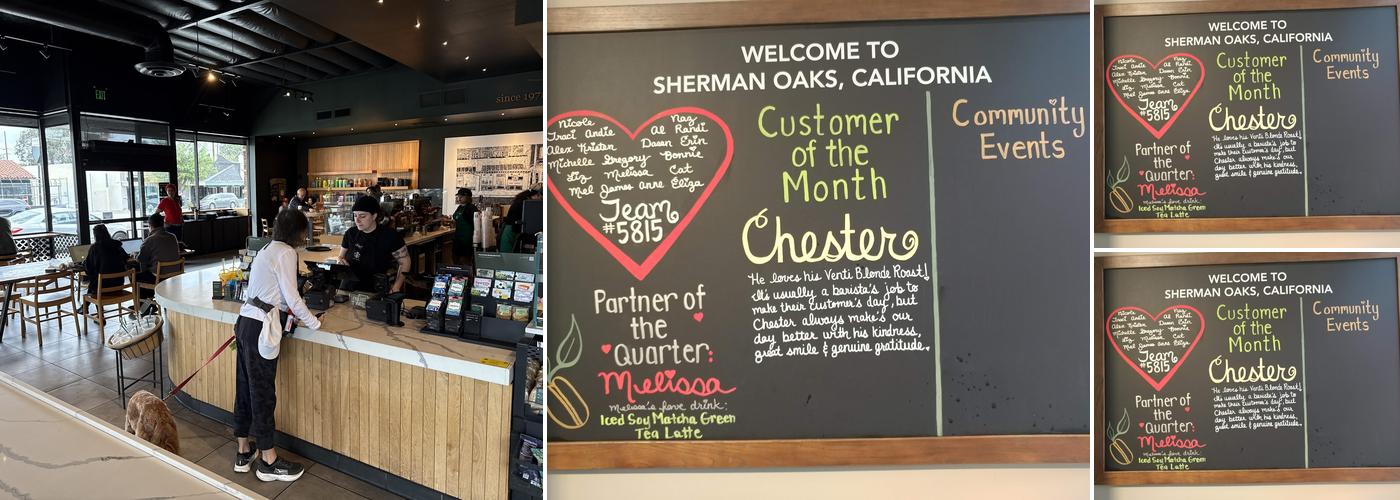 EXIT
since 197
WELCOME TO
SHERMAN OAKS, CALIFORNIA
Nicole Naz
Traci Andie Al Randi
Alex Kristen Dawn Erin
Michelle Gregory Bonnie
Liz Melissa Cat
Mel James Anne Eliza
Team
#5815
Partner of
the
Quarter:
Melissa
Melissa's fave drink:
Iced Soy Matcha Green
Tea Latte
Customer
of the
Month
Chester
He loves his Venti Blonde Roast!
It's usually a barista's job to
make their customer's day, but
Chester always make's our
day better with his kindness,
great smile & genuine gratitude.
Community
Events
WELCOME TO
SHERMAN OAKS, CALIFORNIA
Nicole Naz
Traci Andie Al Randi
Alex Kristen Dawn Erin
Michelle Gregory Bonnie
Liz Melissa Cat
Mel James Anne Eliza
Team
#5815
Partner of
the
Quarter:
Melissa
Melissa's fave drink:
Iced Soy Matcha Green
Tea Latte
Customer
of the
Month
Chester
He loves his Venti Blonde Roast!
It's usually a barista's job to
make their customer's day, but
Chester always make's our
day better with his kindness,
great smile & genuine gratitude.
Community
Events
WELCOME TO
SHERMAN OAKS, CALIFORNIA
Nicole Naz
Traci Andie Al Randi
Alex Kristen Dawn Erin
Michelle Gregory Bonnie
Liz Melissa Cat
Mel James Anne Eliza
Team
#5815
Partner of
the
Quarter:
Melissa
Melissa's fave drink:
Iced Soy Matcha Green
Tea Latte
Customer
of the
Month
Chester
He loves his Venti Blonde Roast!
It's usually a barista's job to
make their customer's day, but
Chester always make's our
day better with his kindness,
great smile & genuine gratitude.
Community
Events